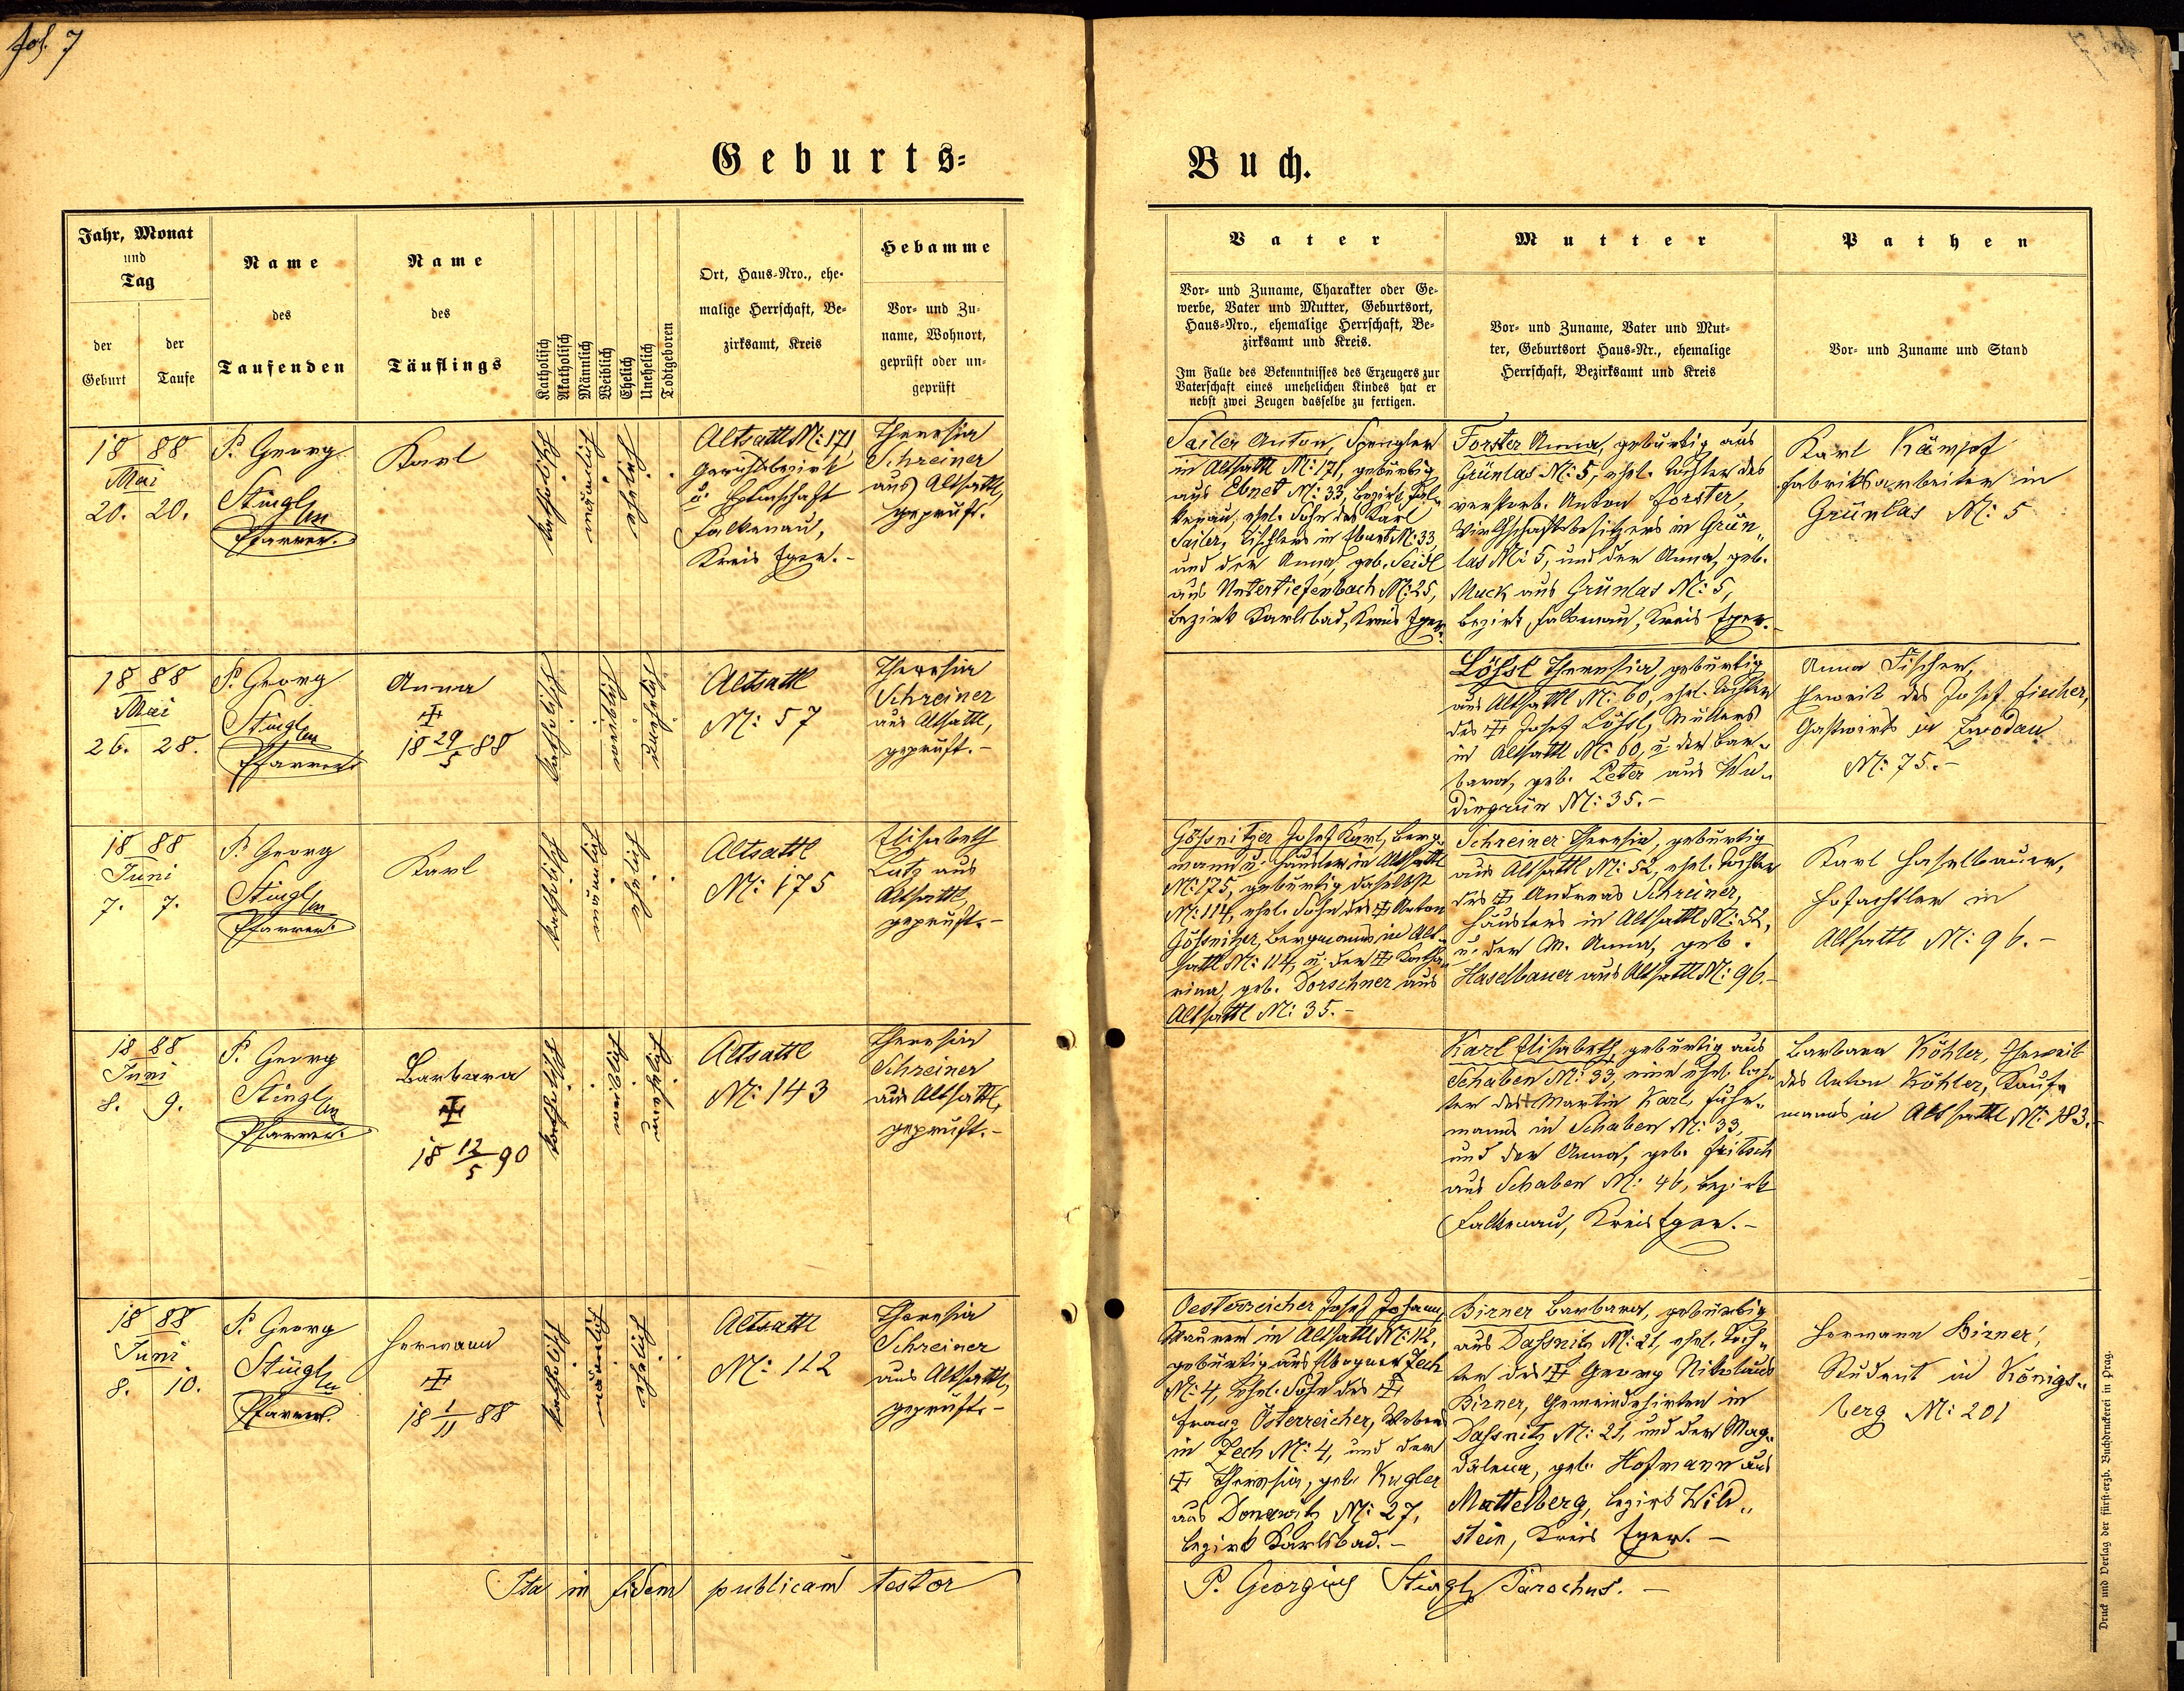 fol. 7
Geburts-
Buch.
Jahr, Monat
und
Tag
der
Geburt
der
Taufe
Name
des
Taufenden
Name
des
Täuflings
Katholisch
Akatholisch
Männlich
Weiblich
Ehelich
Unehelich
Todtgeboren
Ort, Haus-Nro., ehe-
malige Herrschaft, Be-
zirksamt, Kreis
Hebamme
Vor- und Zu-
name, Wohnort,
geprüft oder un-
geprüft
Vater
Vor- und Zuname, Charakter oder Ge-
werbe, Vater und Mutter, Geburtsort,
Haus-Nro., ehemalige Herrschaft, Be-
zirksamt und Kreis.
Im Falle des Bekenntnisses des Erzeugers zur
Vaterschaft eines unehelichen Kindes hat er
nebst zwei Zeugen dasselbe zu fertigen.
Mutter
Vor- und Zuname, Vater und Mut-
ter, Geburtsort Haus-Nr., ehemalige
Herrschaft, Bezirksamt und Kreis
Pathen
Vor- und Zuname und Stand
18 88
Mai
20. 20.
P. Georg
Stingl
Pfarrer.
Karl
katholisch
männlich
ehelich
Altsattl N: 171,
Gerichtsbezirk
u. Herrschaft
Falkenau,
Kreis Eger.-
Theresia
Schreiner
aus Altsattl,
geprüft.
Sailer Anton, Spengler
in Altsattl N: 171, gebürtig
aus Ebnet N: 33, Bezirk Fal-
kenau, ehel. Sohn des Karl
Sailer, Tischlers in Ebnet N: 33,
und der Anna, geb. Seidl
aus Untertiefenbach N: 25,
Bezirk Karlsbad, Kreis Eger.
Forster Anna, gebürtig aus
Grünlas N: 5, ehel. Tochter des
verstorb. Anton Forster,
Wirthschaftsbesitzers in Grün-
las N: 5, und der Anna, geb.
Muck aus Grünlas N: 5,
Bezirk Falkenau, Kreis Eger.-
Karl Kämpf
Fabriksarbeiter in
Grünlas N: 5
18 88
Mai
26. 28.
P. Georg
Stingl
Pfarrer.
Anna
‡
18 29/5 88
katholisch
weiblich
unehelich
Altsattl
N: 57
Theresia
Schreiner
aus Altsattl,
geprüft.-
Lößl Theresia, gebürtig
aus Altsattl N: 60, ehel. Tochter
des ‡ Josef Lößl, Müllers
in Altsattl N: 60, u. der Bar-
bara, geb. Peter aus Wu-
dingrün N: 35.-
Anna Fischer,
Eheweib des Josef Fischer,
Gastwirts in Zwodau
N: 75.-
18 88
Juni
7. 7.
P. Georg
Stingl
Pfarrer.
Karl
katholisch
männlich
ehelich
Altsattl
N: 175
Elisabeth
Lutz aus
Altsattl,
geprüft.-
Gößnitzer Josef Karl, Berg-
mann u. Häusler in Altsattl
N: 175, gebürtig daselbst
N: 114, ehel. Sohn des ‡ Anton
Gößnitzer, Bergmanns in Alt-
sattl N: 114, u. der ‡ Katha-
rina, geb. Dorschner aus
Altsattl N: 35.-
Schreiner Theresia, gebürtig
aus Altsattl N: 52, ehel. Tochter
des ‡ Andreas Schreiner,
Häuslers in Altsattl N: 52,
u. der M. Anna, geb.
Haselbauer aus Altsattl N: 96.-
Karl Haselbauer,
Hofachtler in
Altsattl N: 96.-
18 88
Juni
8. 9.
P. Georg
Stingl
Pfarrer.
Barbara
‡
18 12/5 90
katholisch
weiblich
unehelich
Altsattl
N: 143
Theresia
Schreiner
aus Altsattl,
geprüft.-
Karl Elisabeth, gebürtig aus
Schaben N: 33, eine ehel. Toch-
ter des Martin Karl, Fuhr-
manns in Schaben N: 33,
und der Anna, geb. Fritsch
aus Schaben N: 46, Bezirk
Falkenau, Kreis Eger.-
Barbara Köhler, Eheweib
des Anton Köhler, Kauf-
manns in Altsattl N: 183.-
18 88
Juni
8. 10.
P. Georg
Stingl
Pfarrer.
Hermann
‡
18 1/11 88
katholisch
männlich
ehelich
Altsattl
N: 112
Theresia
Schreiner
aus Altsattl,
geprüft.-
Oesterreicher Josef Johann,
Maurer in Altsattl N: 112,
gebürtig aus Elbogner Zech
N: 4, ehel. Sohn des ‡
Franz Österreicher, Weber
in Zech N: 4, und der
‡ Theresia, geb. Kugler
aus Donawitz N: 27,
Bezirk Karlsbad.-
Birner Barbara, gebürtig
aus Daßnitz N: 21, ehel. Toch-
ter des ‡ Georg Nikolaus
Birner, Gemeindehirten in
Daßnitz N: 21, und der Mag-
dalena, geb. Hofmann aus
Mattelberg, Bezirk Wild-
stein, Kreis Eger.-
Hermann Birner,
Student in Königs-
berg N: 201
Ita in fidem publicam testor
P. Georgius Stingl, Parochus.-
Druck und Verlag der fürst-erzb. Buchdruckerei in Prag.